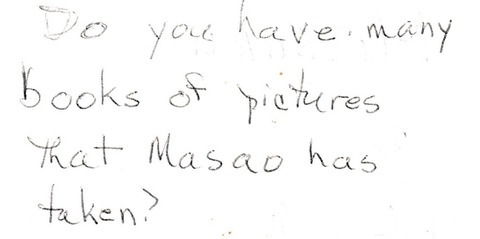 Do you have many
books of pictures
that Masao has
taken?